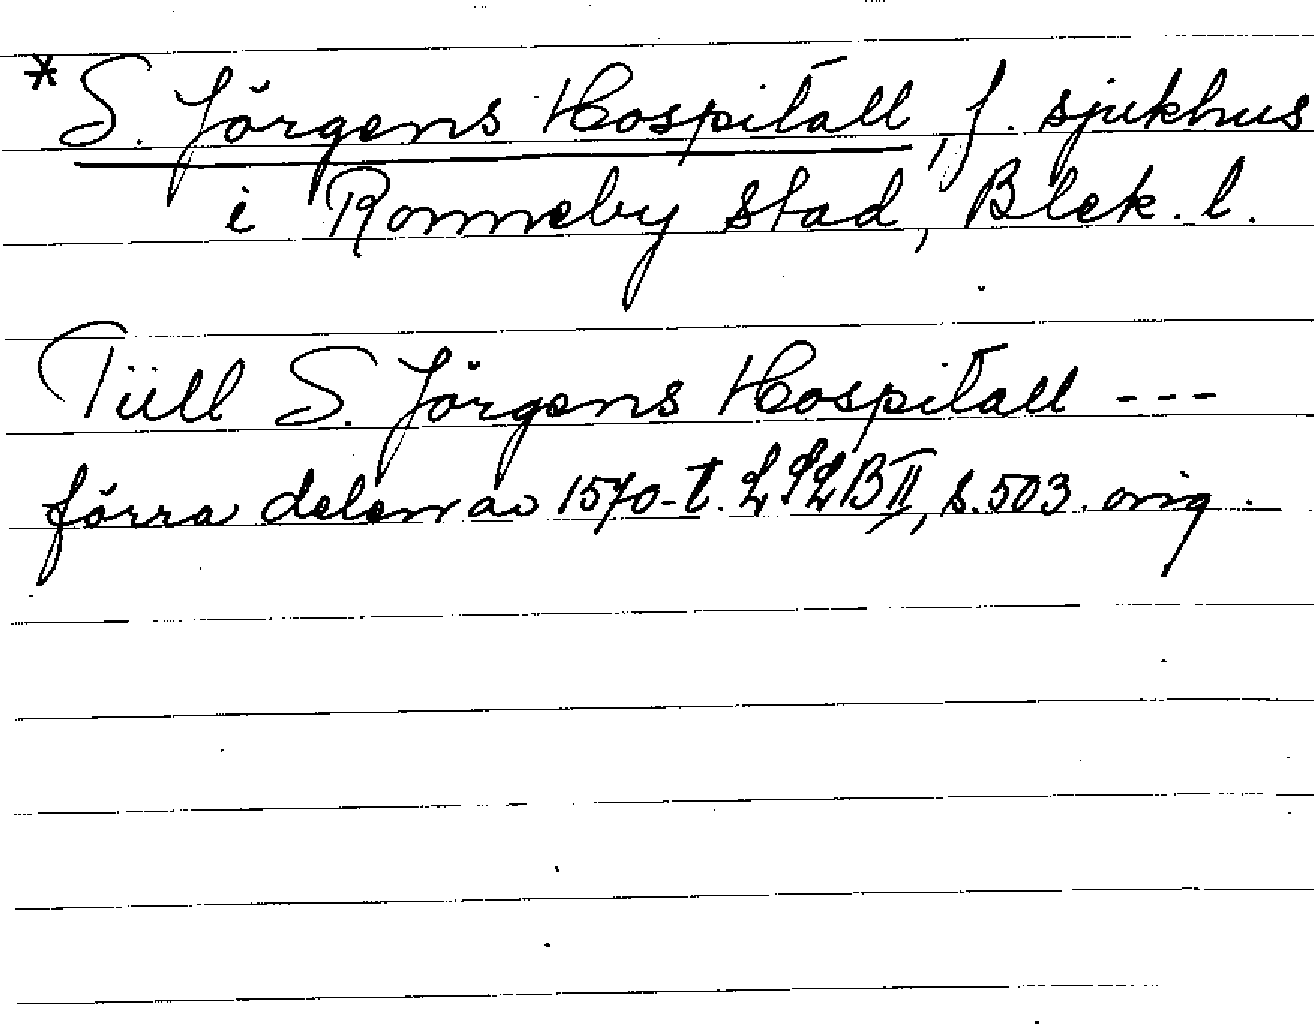 * S. Jörgens Hospitall, f. sjukhus
i Ronneby stad, Blek. l.
Tiill S. Jörgens Hospitall ---
förra delen av 1570-t. LSLB II, s. 503. orig.